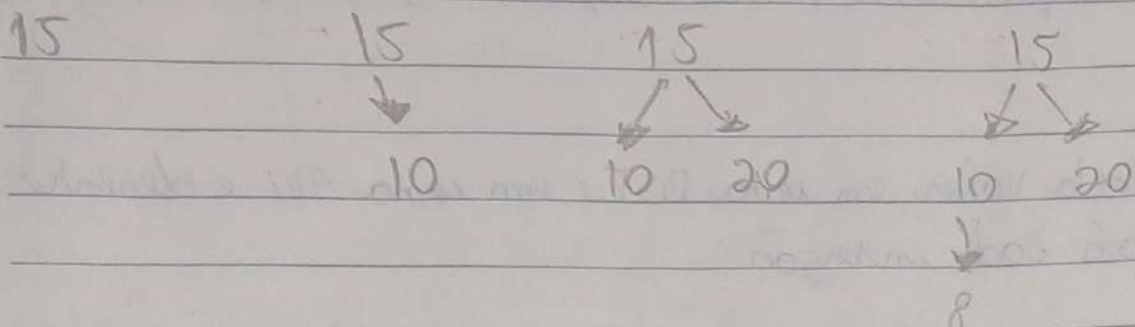 15 15 15 15
10 10 20 10 20
8